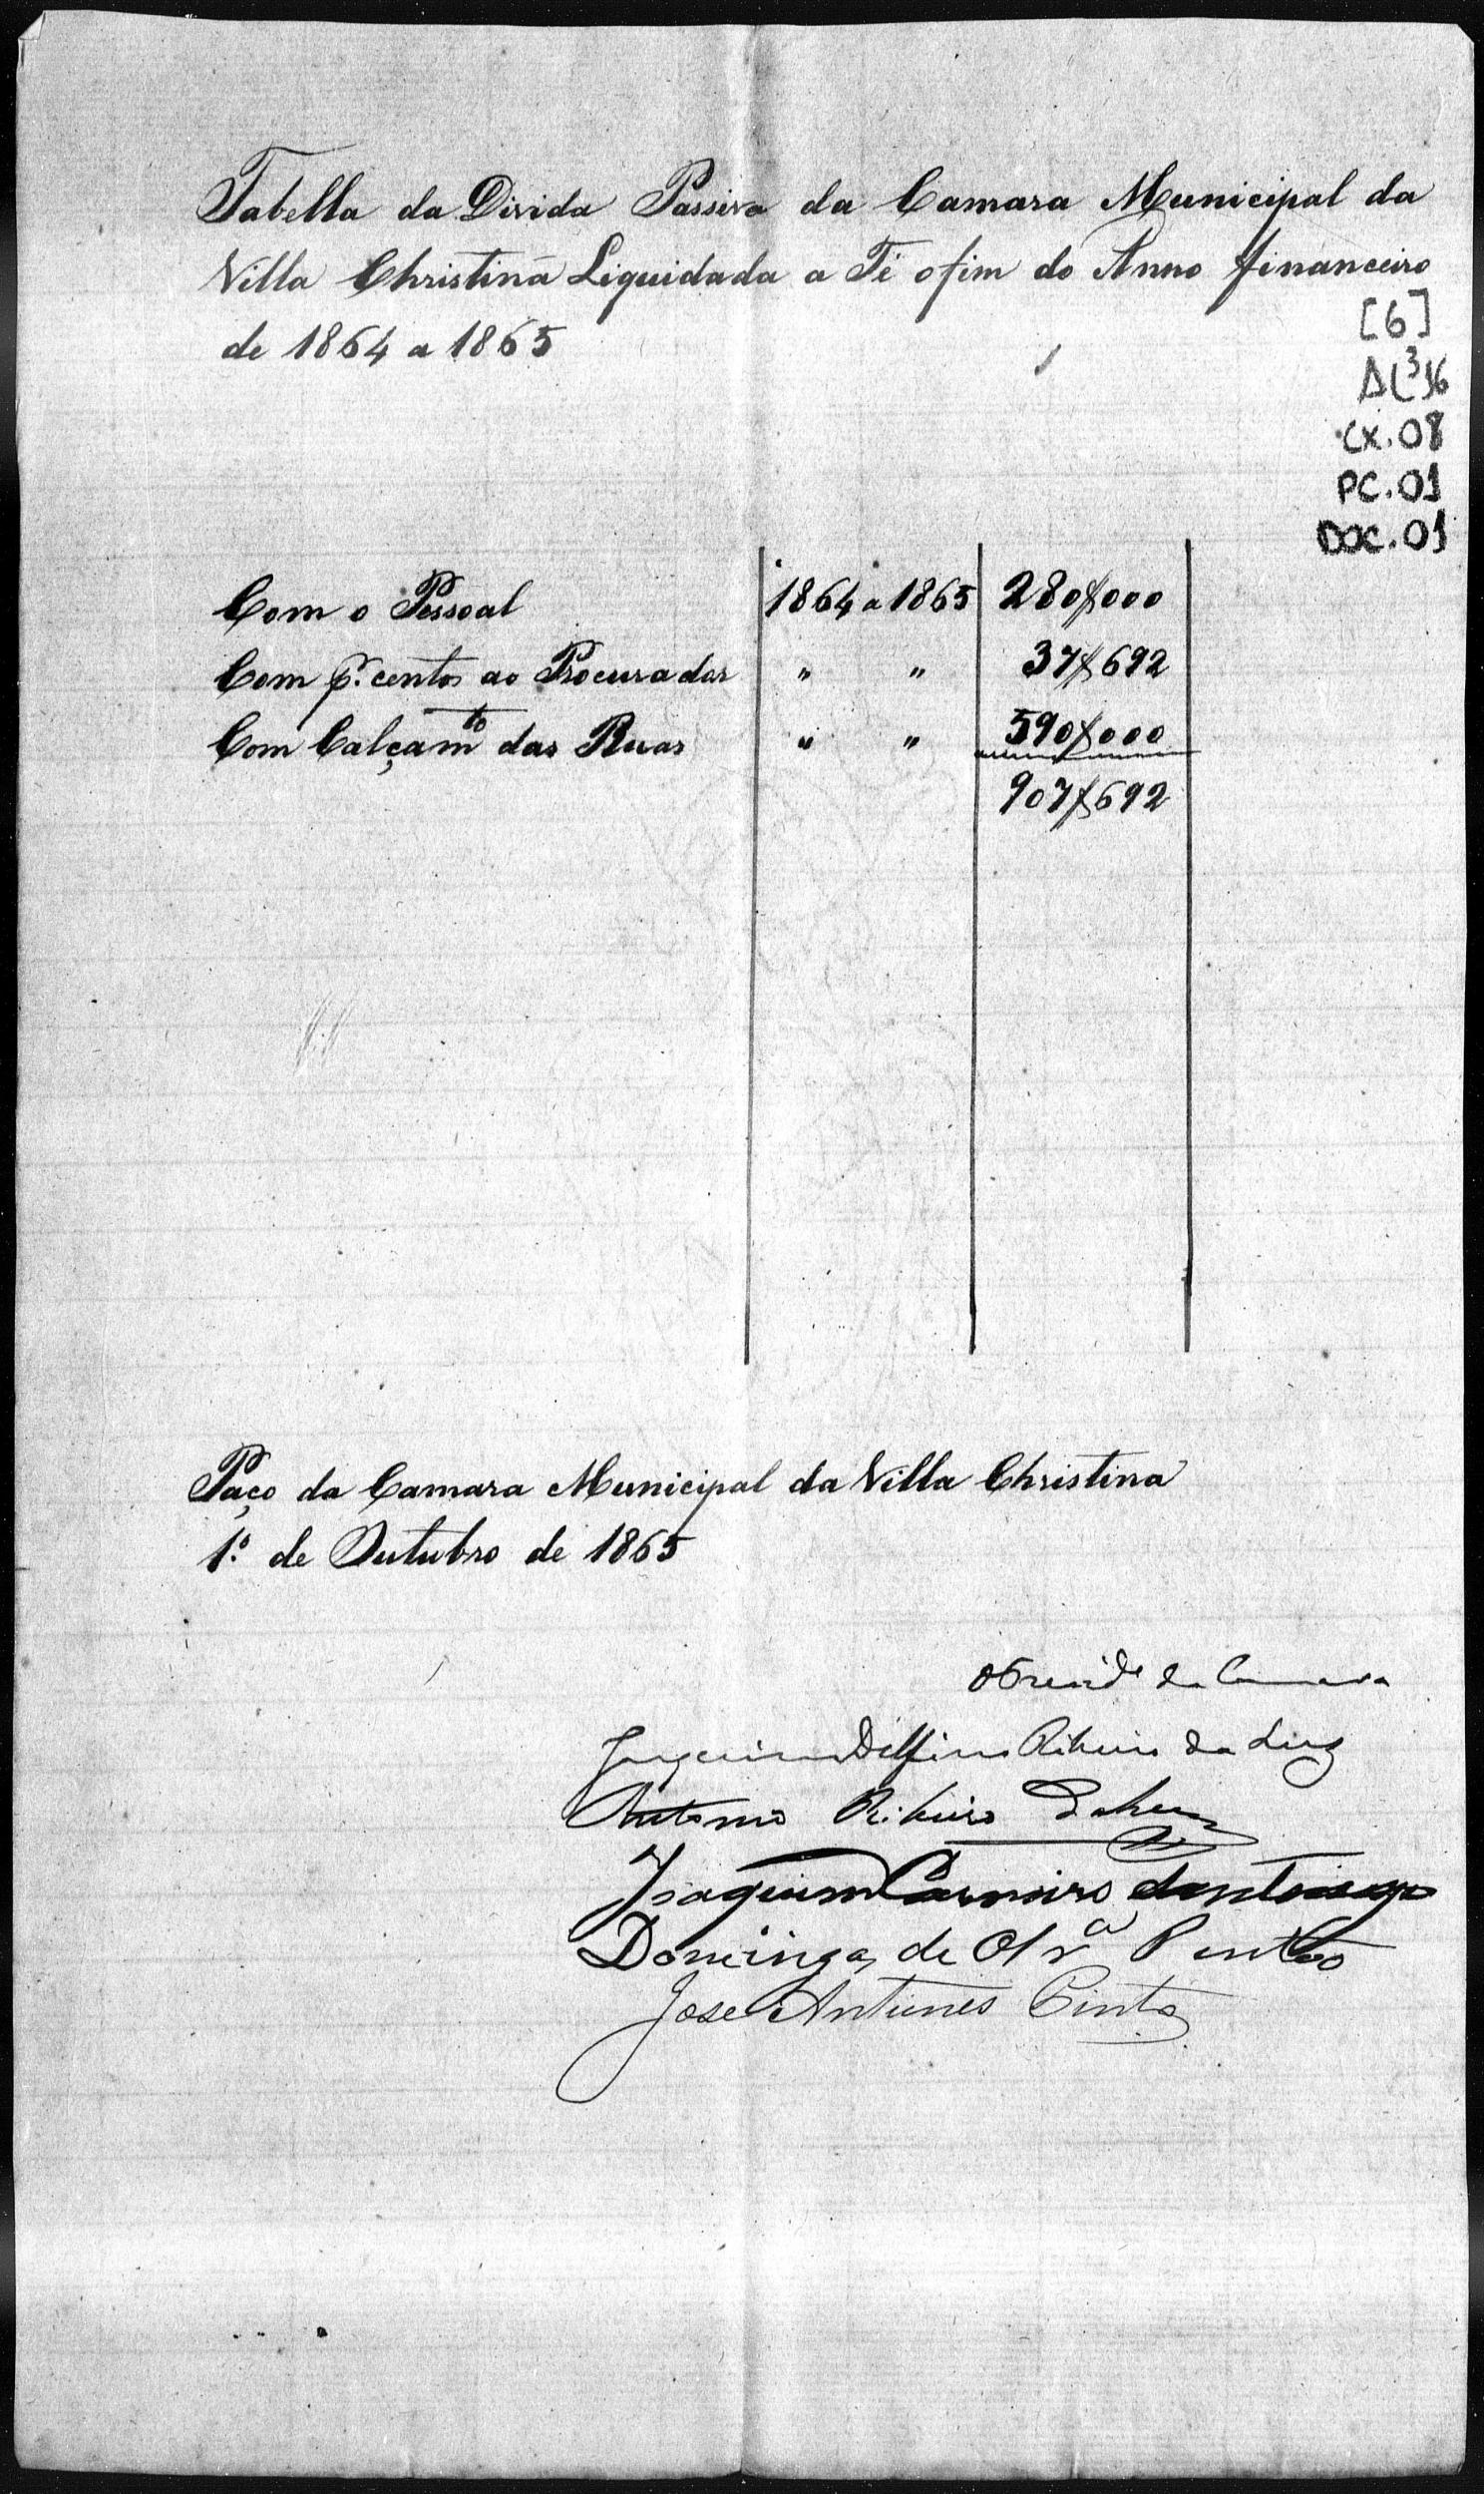 Tabella da Divida Passiva da Camara Municipal da
Villa Christina Liquidada a Té o fim do Anno financeiro
de 1864 a 1865
[6]
CX.08
PC.01
DOC.01
Com o Pessoal 1864 a 1865 280$000
Com p.r centos ao Procurador " " 37$692
Com Calçamto das Ruas " " 590$000
907$692
Paço da Camara Municipal da Villa Christina
1º de Outubro de 1865
O Preside da Camara
Joaquim Delfino Ribeiro da Luz
Antonio Ribeiro da Luz
Joaquim Carneiro
Domingos de Olvra
Jose Antunes Pinto